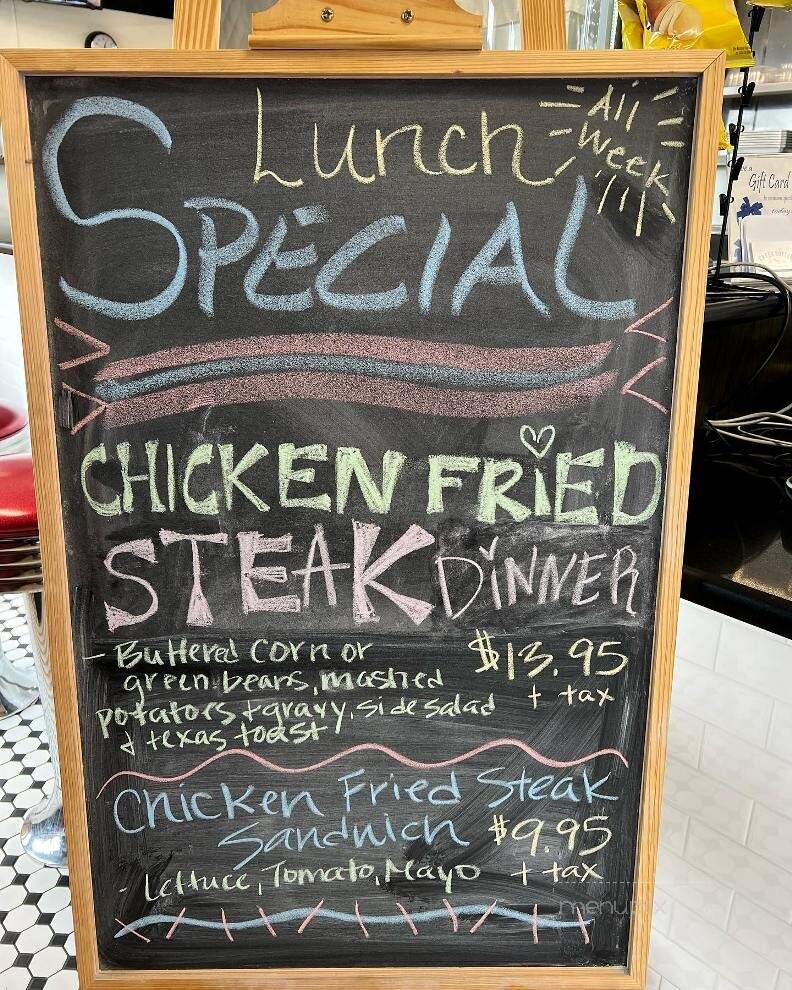 Lunch
All
Week
SPECIAL
CHICKEN FRIED
STEAK DINNER
- Buttered corn or
green beans, mashed
potatoes + gravy, side salad
+ texas toast
$13.95
+ tax
Chicken Fried Steak
Sandwich $9.95
- Lettuce, Tomato, Mayo + tax
Gift Card
menupix